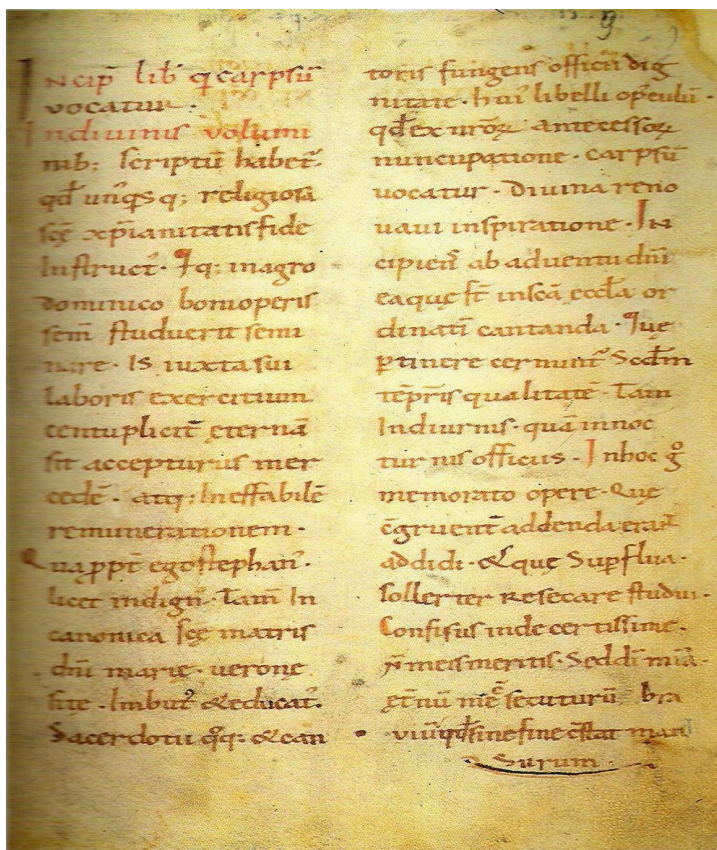 Incip̄ lib̄ q̄ carpsū
vocatur.
In diuinis volumi
nib; scriptū habet̄.
qđ un̄qsq; religiosa
scę xp̄ianitatis fide
Instruct᷒. Iq; in agro
dominico boni operis
sem̄ studuerit semi
nare. IS iuxta sui
laboris exercitium
centuplicit̄ ęternā
sit accepturus mer
cedē. atq; Ineffabilē
remunerationem.
Qua ꝓpt̄ ego stephan᷒.
licet indign᷒. Tam̄ In
canonica scę matris
dn̄i marię. veronę
sitę. Imbut᷒ & educat᷒.
Sacerdotū q̊q; & can
toris fungens officii dig
nitate. hui᷒ libelli op̄eulū.
qđ ex nr̄oꝝ antecessoꝝ
nuncupatione. carpsū
vocatur. Diuina reno
uaui inspiratione. In
cipiens ab aduentu dn̄i
eaquę st̄ in scā ęccl̄a or
dinati cantanda. Quę
ꝑtinere cernunt᷒ Scđm
tēpr̄is qualitatē. Tam
In diurnis. quā in noc
turnis officiis. In hoc g̊
memorato opere. Quę
c̄gruent̄ addenda erant
addidi. & quę Supflua.
sollerter Resecare studui.
Confisus inde certissime.
n̄ meis meritis. Sed dī mīa.
& n̄ū mē secuturū bra
viū qđ sine fine c̄stat man
Surum.